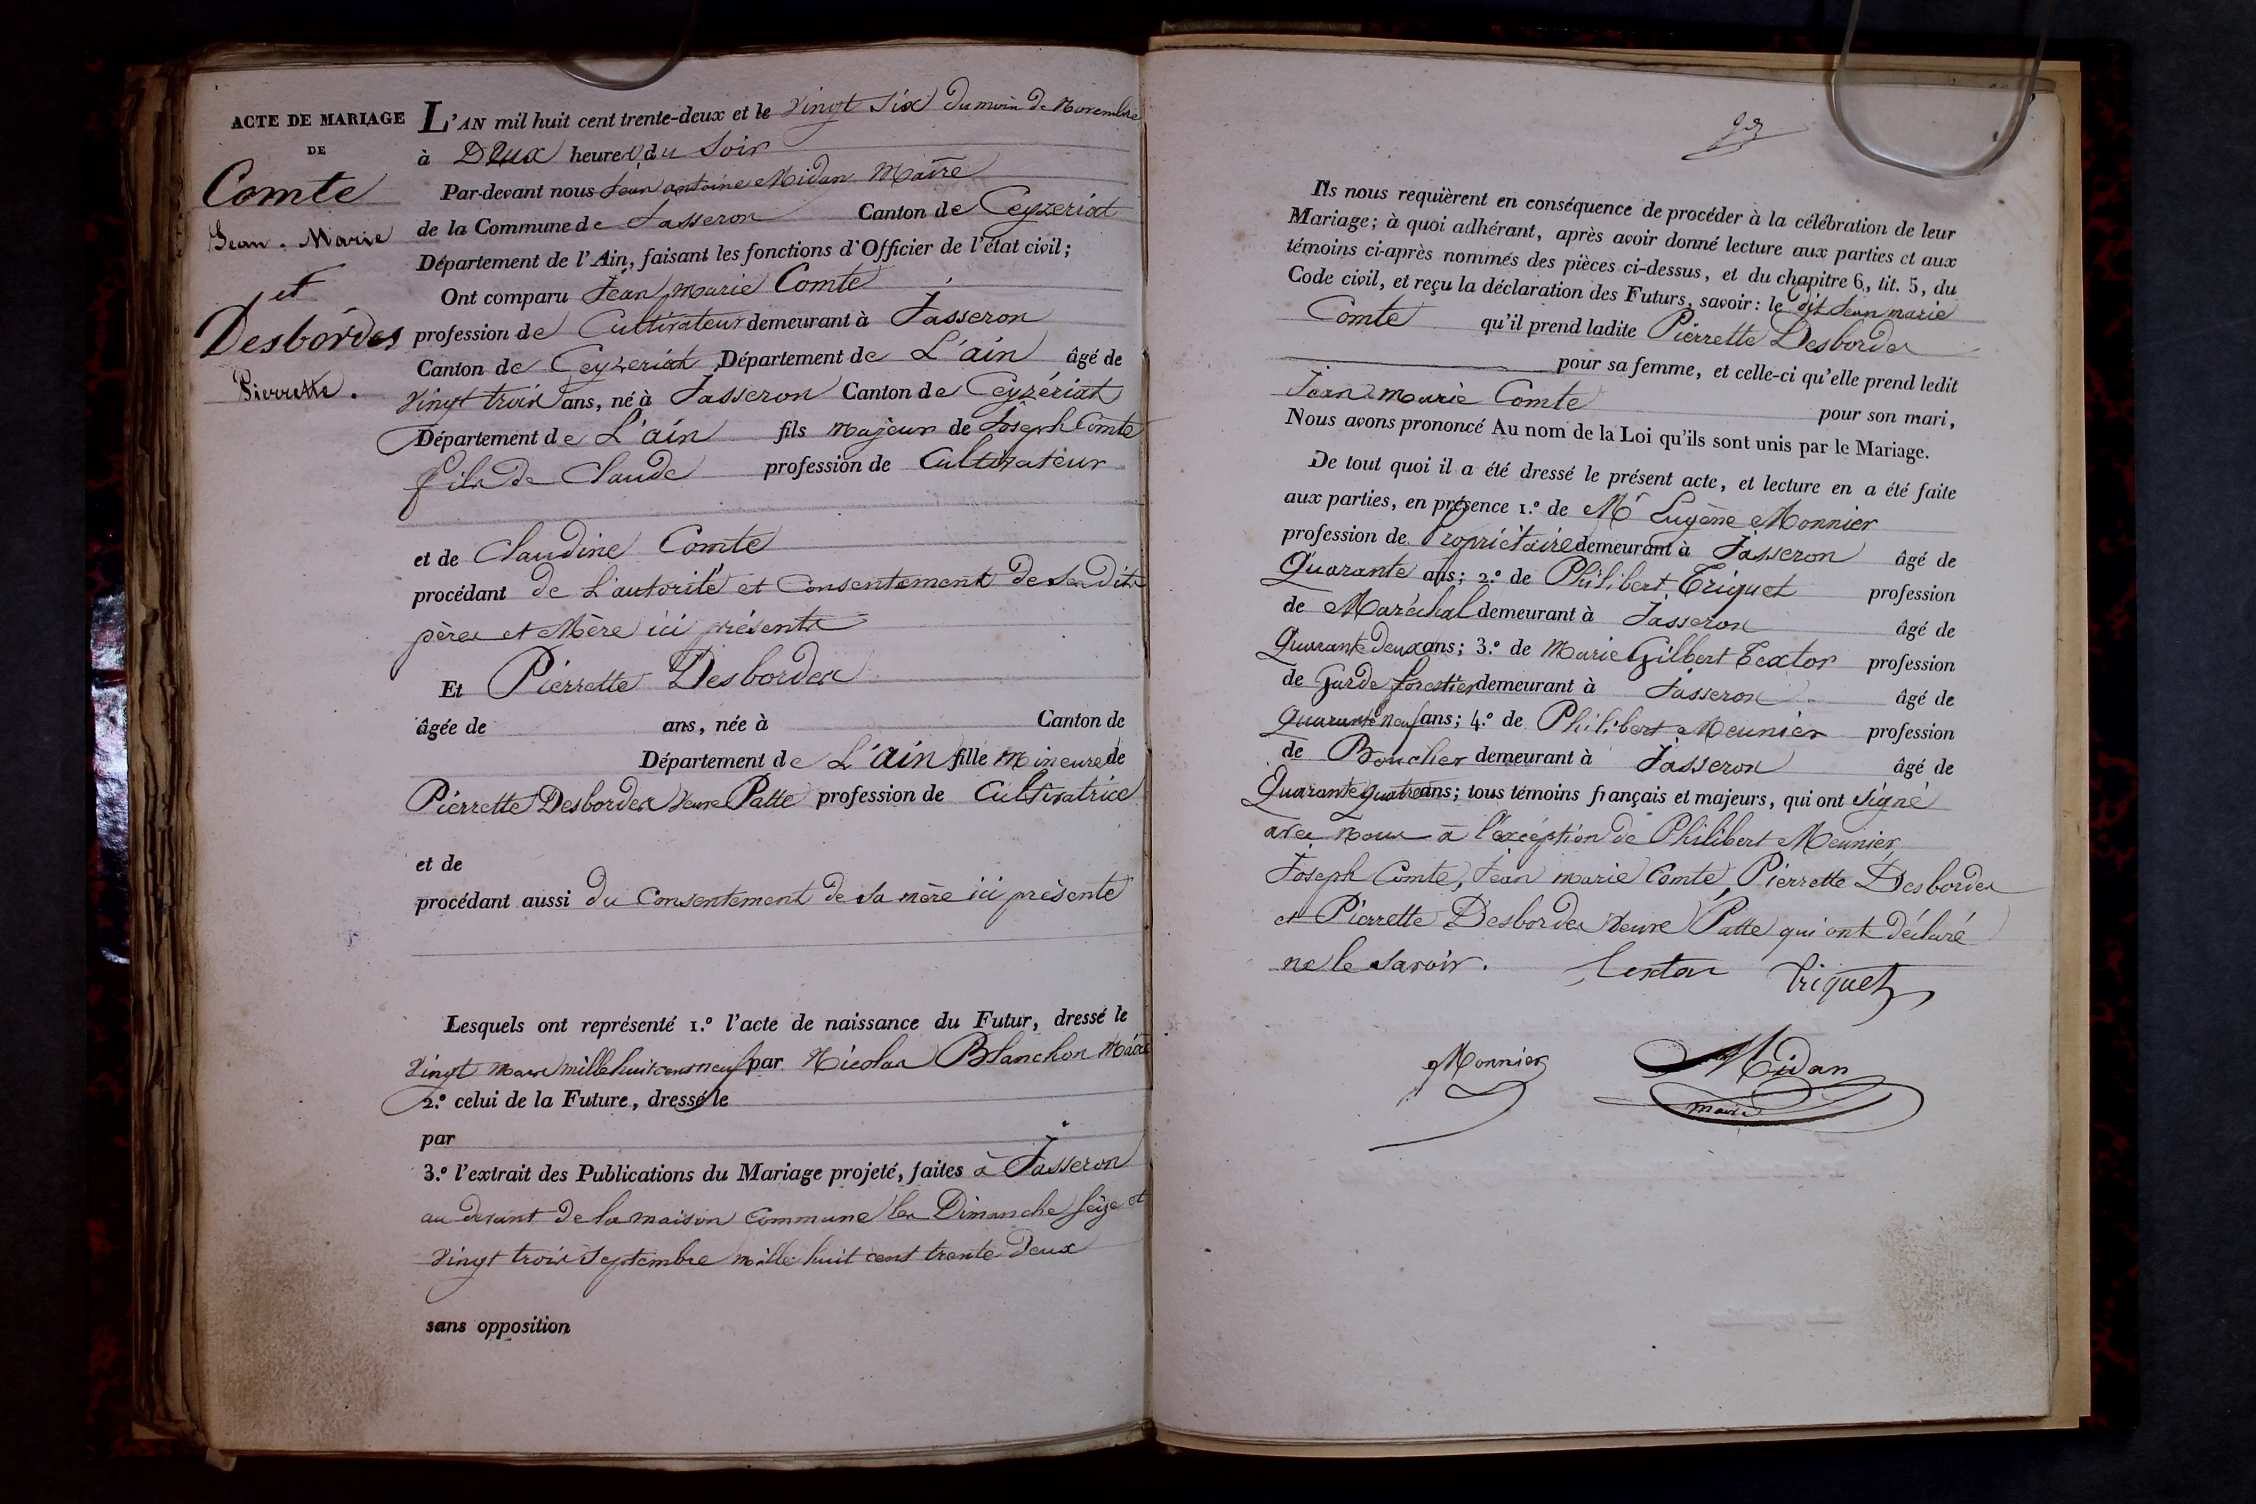 ACTE DE MARIAGE
DE
Comte
Jean-Marie
et
Desbordes
Pierrette.
L'AN mil huit cent trente-deux et le Vingt Six du mois de Novembre
à Deux heures du Soir
Par-devant nous Jean antoine Midan Maire
de la Commune de Jasseron Canton de Ceyzeriat
Département de l'Ain, faisant les fonctions d'Officier de l'état civil;
Ont comparu Jean marie Comte
profession de Cultivateur demeurant à Jasseron
Canton de Ceyzeriat Département de L'ain âgé de
Vingt trois ans, né à Jasseron Canton de Ceyzériat
Département de L'ain fils majeur de Joseph Comte
fils de Claude profession de Cultivateur
et de Claudine Comte
procédant de L'autorité et Consentement de ses dits
pères et Mère ici présents
Et Pierrette Desbordes
âgée de ans, née à Canton de
Département de L'ain fille Mineure de
Pierrette Desbordes veuve Patte profession de Cultivatrice
et de
procédant aussi du Consentement de sa mère ici présente
Lesquels ont représenté 1.º l'acte de naissance du Futur, dressé le
Vingt mars mille huit cent neuf par Nicolas Blanchon Maire
2.º celui de la Future, dressé le
par
3.º l'extrait des Publications du Mariage projeté, faites à Jasseron
au devant de la maison Commune les Dimanche seize et
Vingt trois Septembre mille huit cent trente Deux
sans opposition
Ils nous requièrent en conséquence de procéder à la célébration de leur
Mariage; à quoi adhérant, après avoir donné lecture aux parties et aux
témoins ci-après nommés des pièces ci-dessus, et du chapitre 6, tit. 5, du
Code civil, et reçu la déclaration des Futurs, savoir: le dit Jean marie
Comte qu'il prend ladite Pierrette Desbordes
pour sa femme, et celle-ci qu'elle prend ledit
Jean marie Comte pour son mari,
Nous avons prononcé Au nom de la Loi qu'ils sont unis par le Mariage.
De tout quoi il a été dressé le présent acte, et lecture en a été faite
aux parties, en présence 1.º de Mr Eugène Monnier
profession de Propriétaire demeurant à Jasseron âgé de
Quarante ans; 2.º de Philibert Triquet profession
de Maréchal demeurant à Jasseron âgé de
Quarante Deux ans; 3.º de Marie Gilbert Textor profession
de Garde forestier demeurant à Jasseron âgé de
Quarante neuf ans; 4.º de Philibert Meunier profession
de Boucher demeurant à Jasseron âgé de
Quarante quatre ans; tous témoins français et majeurs, qui ont Signé
avec nous à l'exception de Philibert Meunier,
Joseph Comte, Jean marie Comte, Pierrette Desbordes
et Pierrette Desbordes veuve Patte qui ont déclaré
ne le savoir. Textor Triquet
Monnier Midan
maire